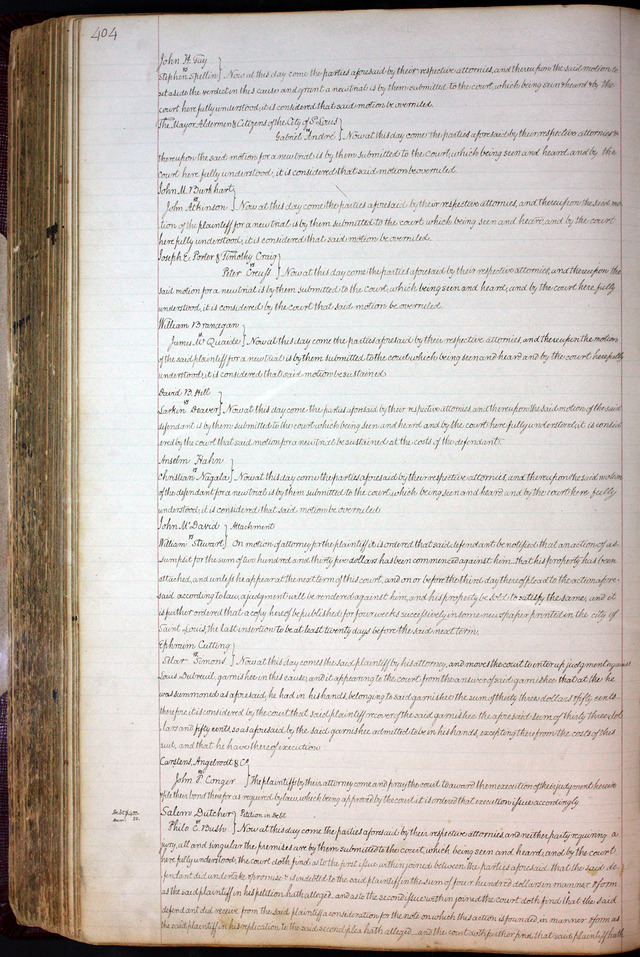 404
John H. Gay
vs
Stephen Spellin } Now at this day come the parties aforesaid by their respective attornies, and thereupon the said motion to
set aside the verdict in this cause and grant a new trial is by them submitted to the court, which being seen & heard & by the
court here fully understood, it is considered that said motion be overruled.
The Mayor Aldermen & Citizens of the City of St Louis
vs
Gabriel André } Now at this day come the parties aforesaid by their respective attornies &
thereupon the said motion for a new trial is by them submitted to the Court, which being seen and heard, and by the
Court here fully understood, it is considered that said motion be overruled.
John M. Burkhart
vs
John Atkinson } Now at this day come the parties aforesaid by their respective attornies, and thereupon the said mo-
tion of the plaintiff for a new trial is by them submitted to the court, which being seen and heard, and by the court
here fully understood, it is considered that said motion be overruled.
Joseph E. Porter & Timothy Craig
vs
Peter Creuss } Now at this day come the parties aforesaid by their respective attornies, and thereupon the
said motion for a new trial is by them submitted to the Court, which being seen and heard, and by the court here fully
understood, it is considered by the court that said motion be overruled.
William Branagan
vs
James McQuade } Now at this day come the parties aforesaid by their respective attornies, and thereupon the motion
of the said plaintiff for a new trial is by them submitted to the court, which being seen and heard and by the court here fully
understood, it is considered that said motion be sustained
David B. Hill
vs
Larkin Deaver } Now at this day come the parties aforesaid by their respective attornies, and thereupon the said motion of the said
defendant is by them submitted to the court, which being seen and heard and by the court here fully understood, it is consid-
ered by the court that said motion for a new trial be sustained at the costs of the defendant.
Anselm Hahn
vs
Christian Nagala } Now at this day come the parties aforesaid by their respective attornies, and thereupon the said motion
of the defendant for a new trial is by them submitted to the court, which being seen and heard and by the court here fully
understood, it is considered that said motion be overruled
John McDavid } Attachment
vs
William Stewart } On motion of attorney for the plaintiff it is ordered that said defendant be notified that an action of as-
sumpsit for the sum of two hundred and thirty five dollars has been commenced against him that his property has been
attached, and unless he appear at the next term of this court, and on or before the third day thereof plead to the action afore-
said according to law, a judgment will be rendered against him, and his property be sold to satisfy the same, and it
is further ordered that a copy hereof be published for four weeks successively in some newspaper printed in the city of
Saint Louis, the last insertion to be at least twenty days before the said next term.
Ephraim Cutting
vs
Simons } Now at this day comes the said plaintiff by his attorney, and moves the court to enter up judgment against
Louis Dubreuil, garnishee in this cause, and it appearing to the court from the answer of said garnishee that at the he
was summoned as aforesaid, he had in his hands, belonging to said garnishee the sum of thirty three dollars & fifty cents
therefore it is considered by the court that said plaintiff recover of the said garnishee the aforesaid sum of thirty three dol-
lars and fifty cents, so as aforesaid by the said garnishee admitted to be in his hands, excepting therefrom the costs of this
suit, and that he have thereof execution
Carstens, Angelrodt & Co
vs
John P. Conger } The plaintiffs by their attorney come and pray the court to award them execution of their judgment herein &
file their bond therefor as required by law, which being approved by the court, it is ordered that execution issue accordingly.
Salem Dutcher } Petition in Debt
vs
Philo C. Bush } Now at this day come the parties aforesaid by their respective attornies and neither party requiring a
jury, all and singular the premises are by them submitted to the court, which being seen and heard, and by the court
here fully understood, the court doth find as to the first issue within joined between the parties aforesaid that the said de-
fendant did undertake & promise & is indebted to the said plaintiff in the sum of four hundred dollars in manner & form
as the said plaintiff in his petition hath alleged, and as to the second issue within joined the court doth find that the said
defendant did receive from the said plaintiff a consideration for the note on which this action is founded in manner & form as
the said plaintiff in his replication to the said second plea hath alleged and the court doth further find that said plaintiff hath